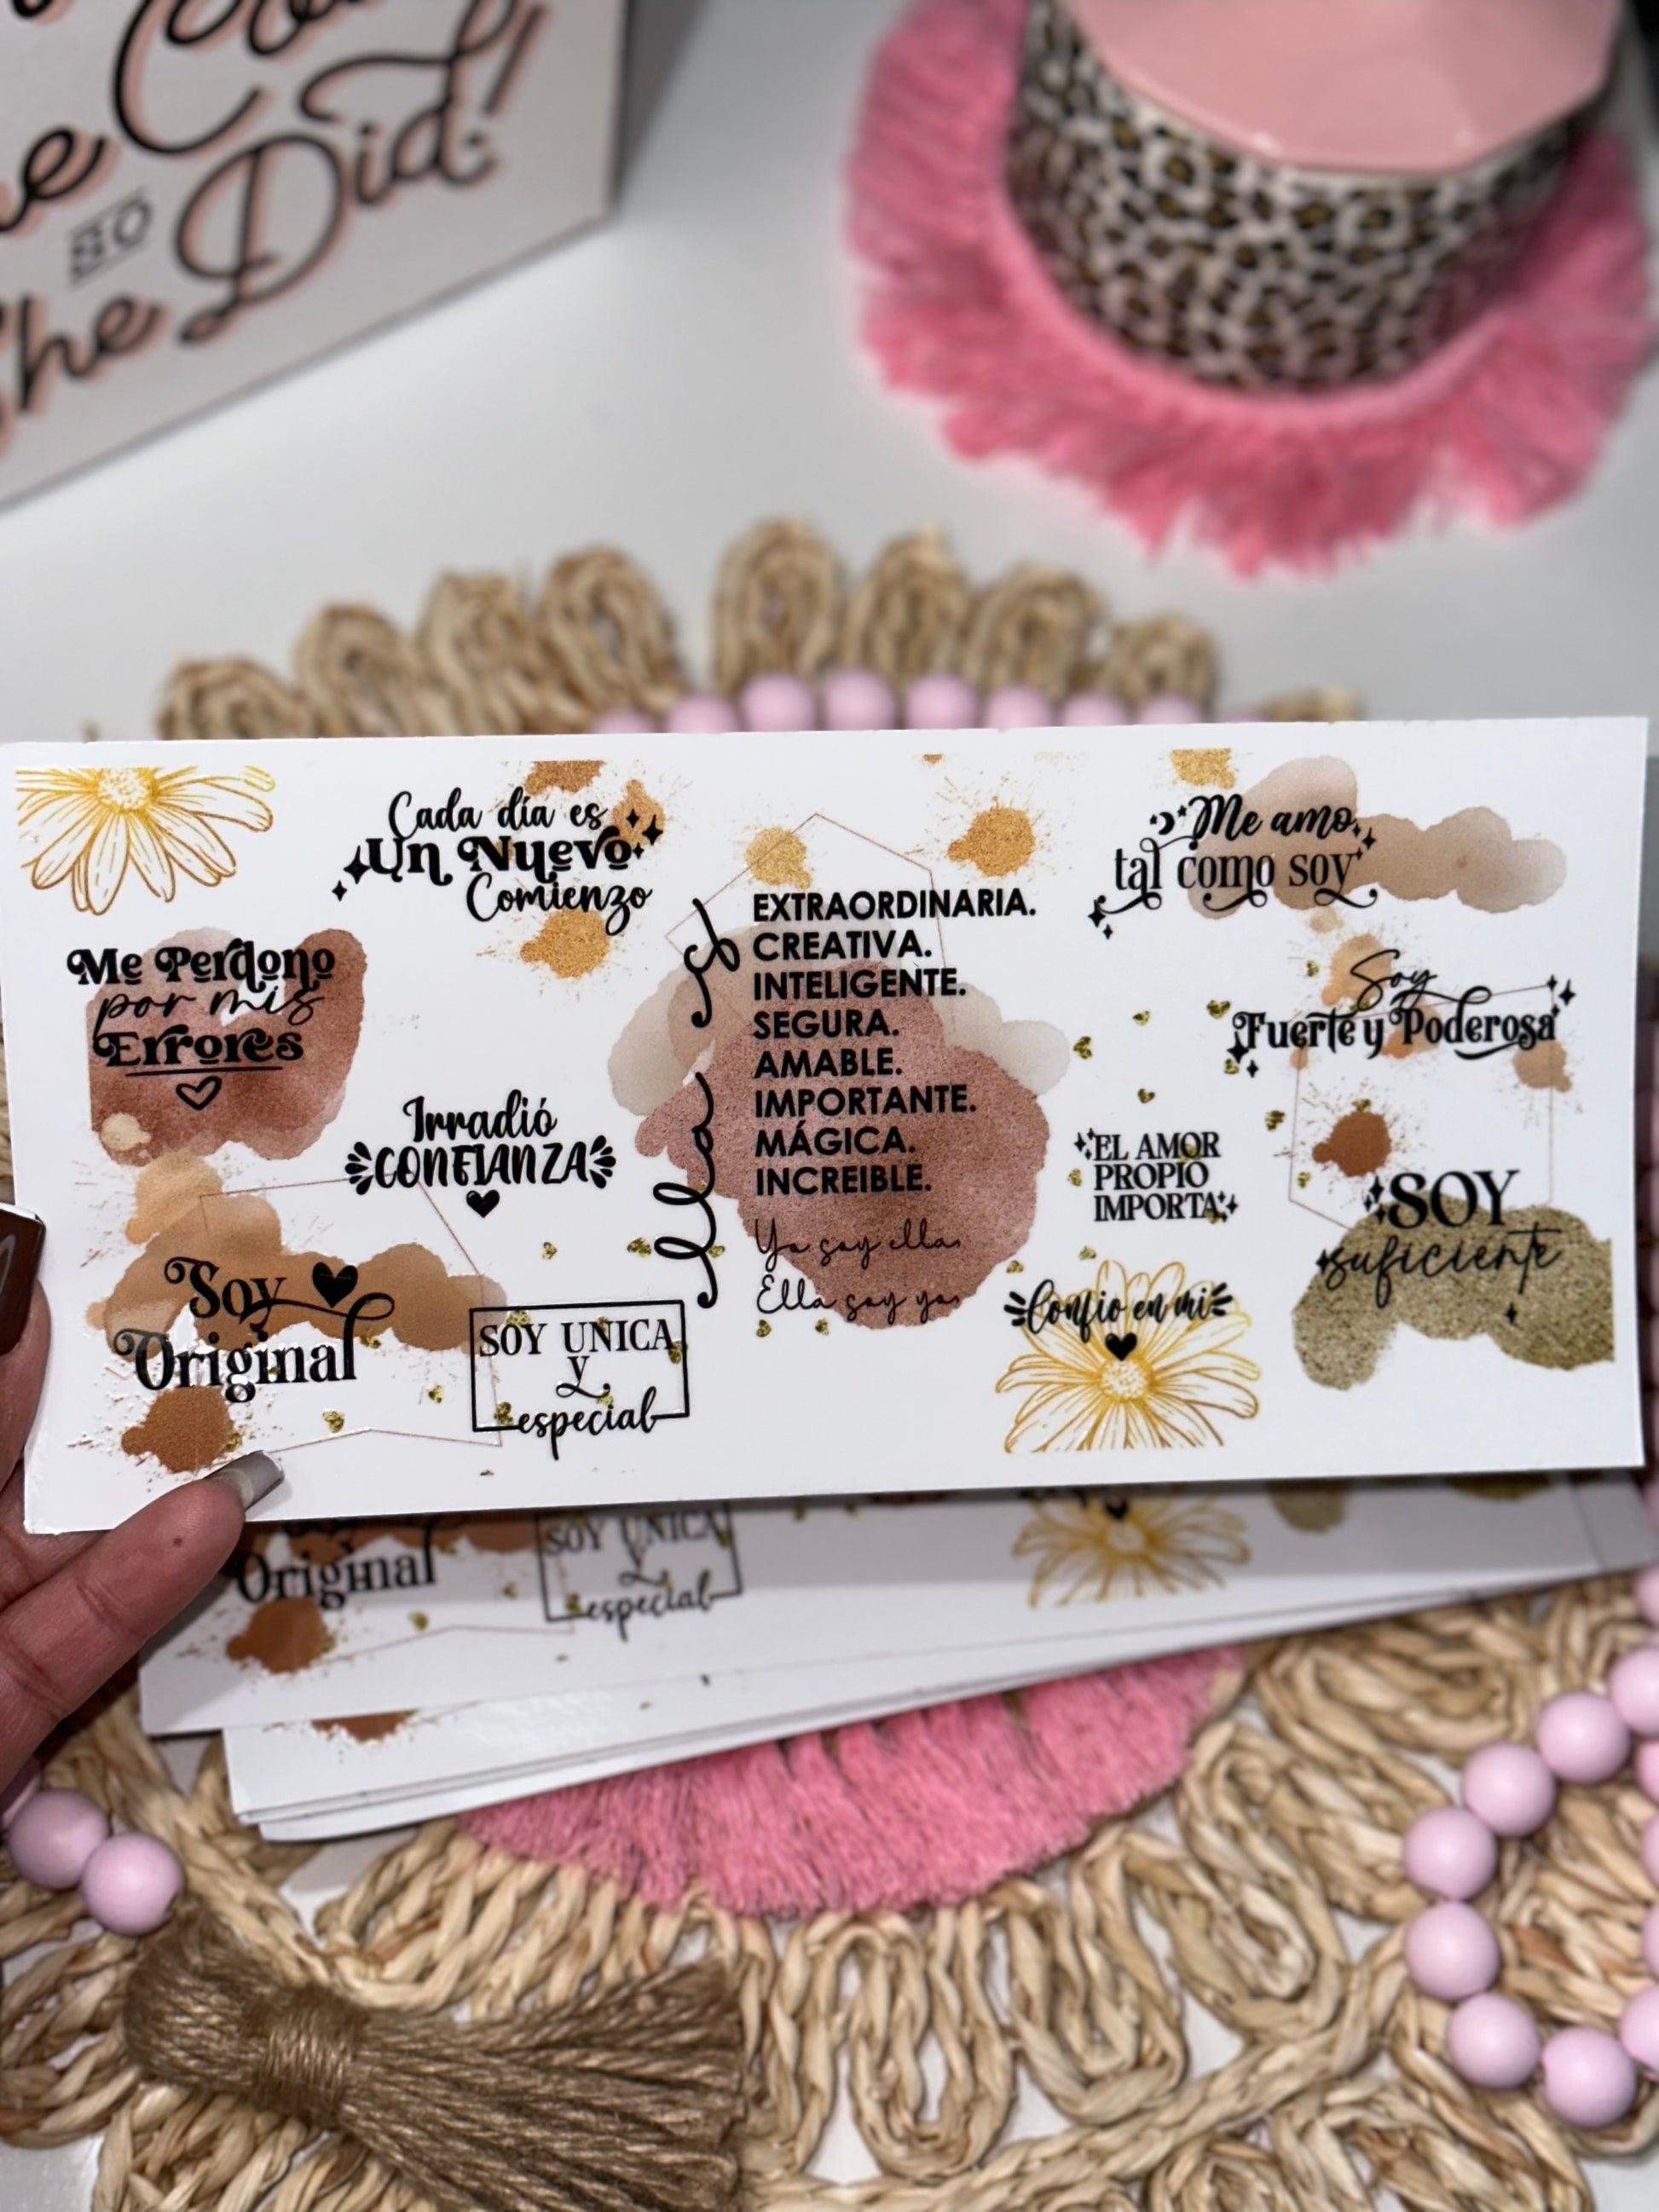 Did!
so
She Did!
Cada día es
Un Nuevo
Comienzo
Me Perdono
por mis
Errores
Irradió
CONFIANZA
Soy
Original
SOY UNICA
y
especial
ella es
EXTRAORDINARIA.
CREATIVA.
INTELIGENTE.
SEGURA.
AMABLE.
IMPORTANTE.
MÁGICA.
INCREIBLE.
Yo soy ella
Ella soy yo
Me amo
tal como soy
Soy
Fuerte y Poderosa
EL AMOR
PROPIO
IMPORTA
SOY
suficiente
Confio en mi
Original
SOY UNICA
y
especial